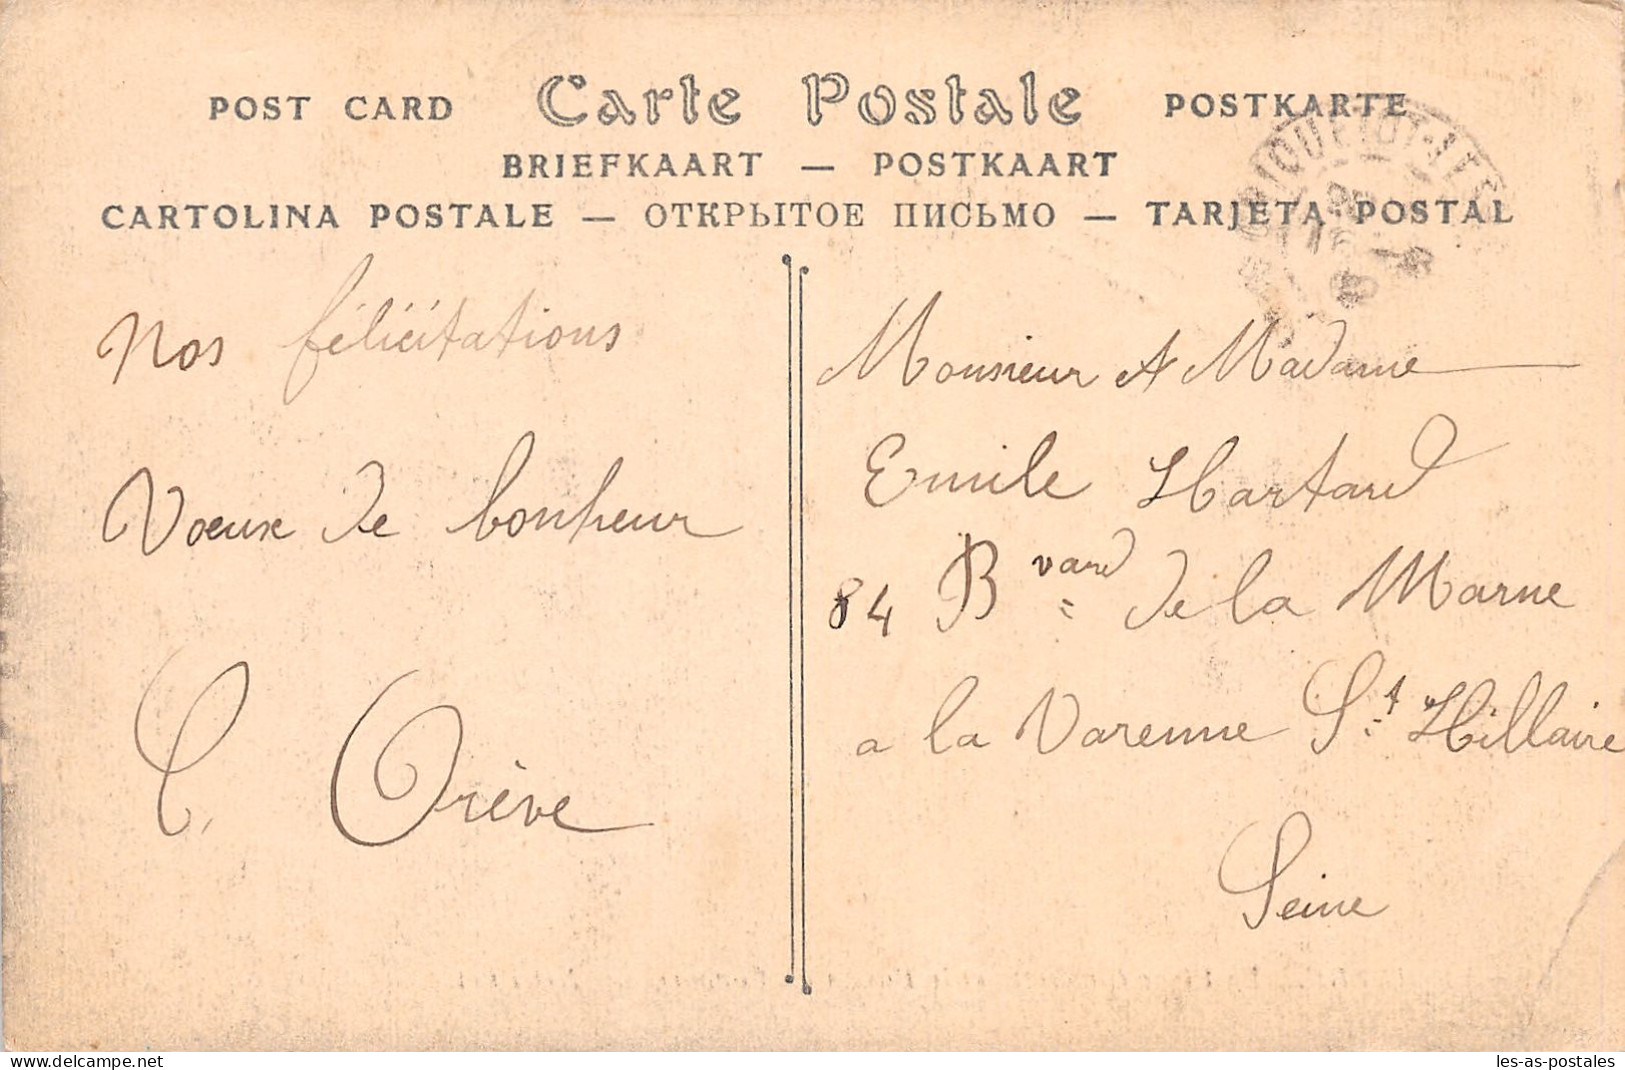 POST CARD Carte Postale POSTKARTE
BRIEFKAART — POSTKAART
CARTOLINA POSTALE — ОТКРЫТОЕ ПИСЬМО — TARJETA POSTAL
Nos félicitations
Voeux de bonheur
Monsieur et Madame
Emile Hartard
84 Bvard de la Marne
a la Varenne St Hillaire
Seine
delcampe.net
les-as-postales